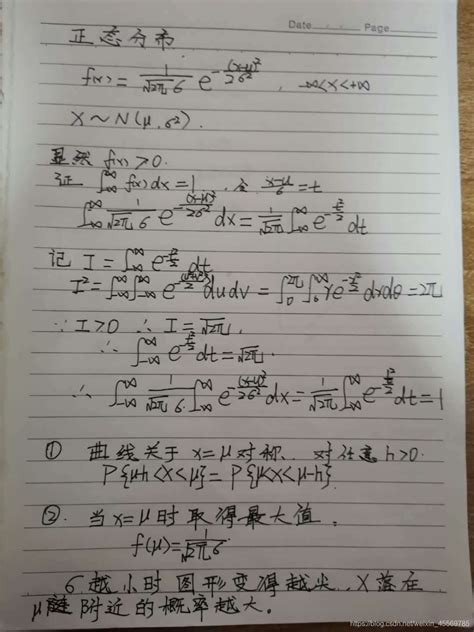 Date Page
正态分布
f(x) = 1/(√2π σ) e^(-(x-μ)²/2σ²) , -∞<x<+∞
X ~ N(μ, σ²).
显然 f(x) > 0.
证 ∫_{-∞}^{∞} f(x)dx = 1, 令 (x-μ)/σ = t
∫_{-∞}^{∞} 1/(√2π σ) e^(-(x-μ)²/2σ²) dx = 1/√2π ∫_{-∞}^{∞} e^(-t²/2) dt
记 I = ∫_{-∞}^{∞} e^(-t²/2) dt
I² = ∫_{-∞}^{∞}∫_{-∞}^{∞} e^(-(u²+v²)/2) du dv = ∫_0^{2π} ∫_0^{∞} r e^(-r²/2) dr dθ = 2π
∵ I>0 ∴ I = √2π,
∴ ∫_{-∞}^{∞} e^(-t²/2) dt = √2π.
∴ ∫_{-∞}^{∞} 1/(√2π σ) ∫_{-∞}^{∞} e^(-(x-μ)²/2σ²) dx = 1/√2π ∫_{-∞}^{∞} e^(-t²/2) dt = 1
① 曲线关于 x=μ 对称. 对任意 h>0.
P{μ-h<X<μ} = P{μ<X<μ-h}
②. 当 x=μ 时取得最大值,
f(μ) = 1/(√2π σ)
σ越小时 图形变得越尖, X落在
μ 附近的概率越大。
https://blog.csdn.net/weixin_45569785